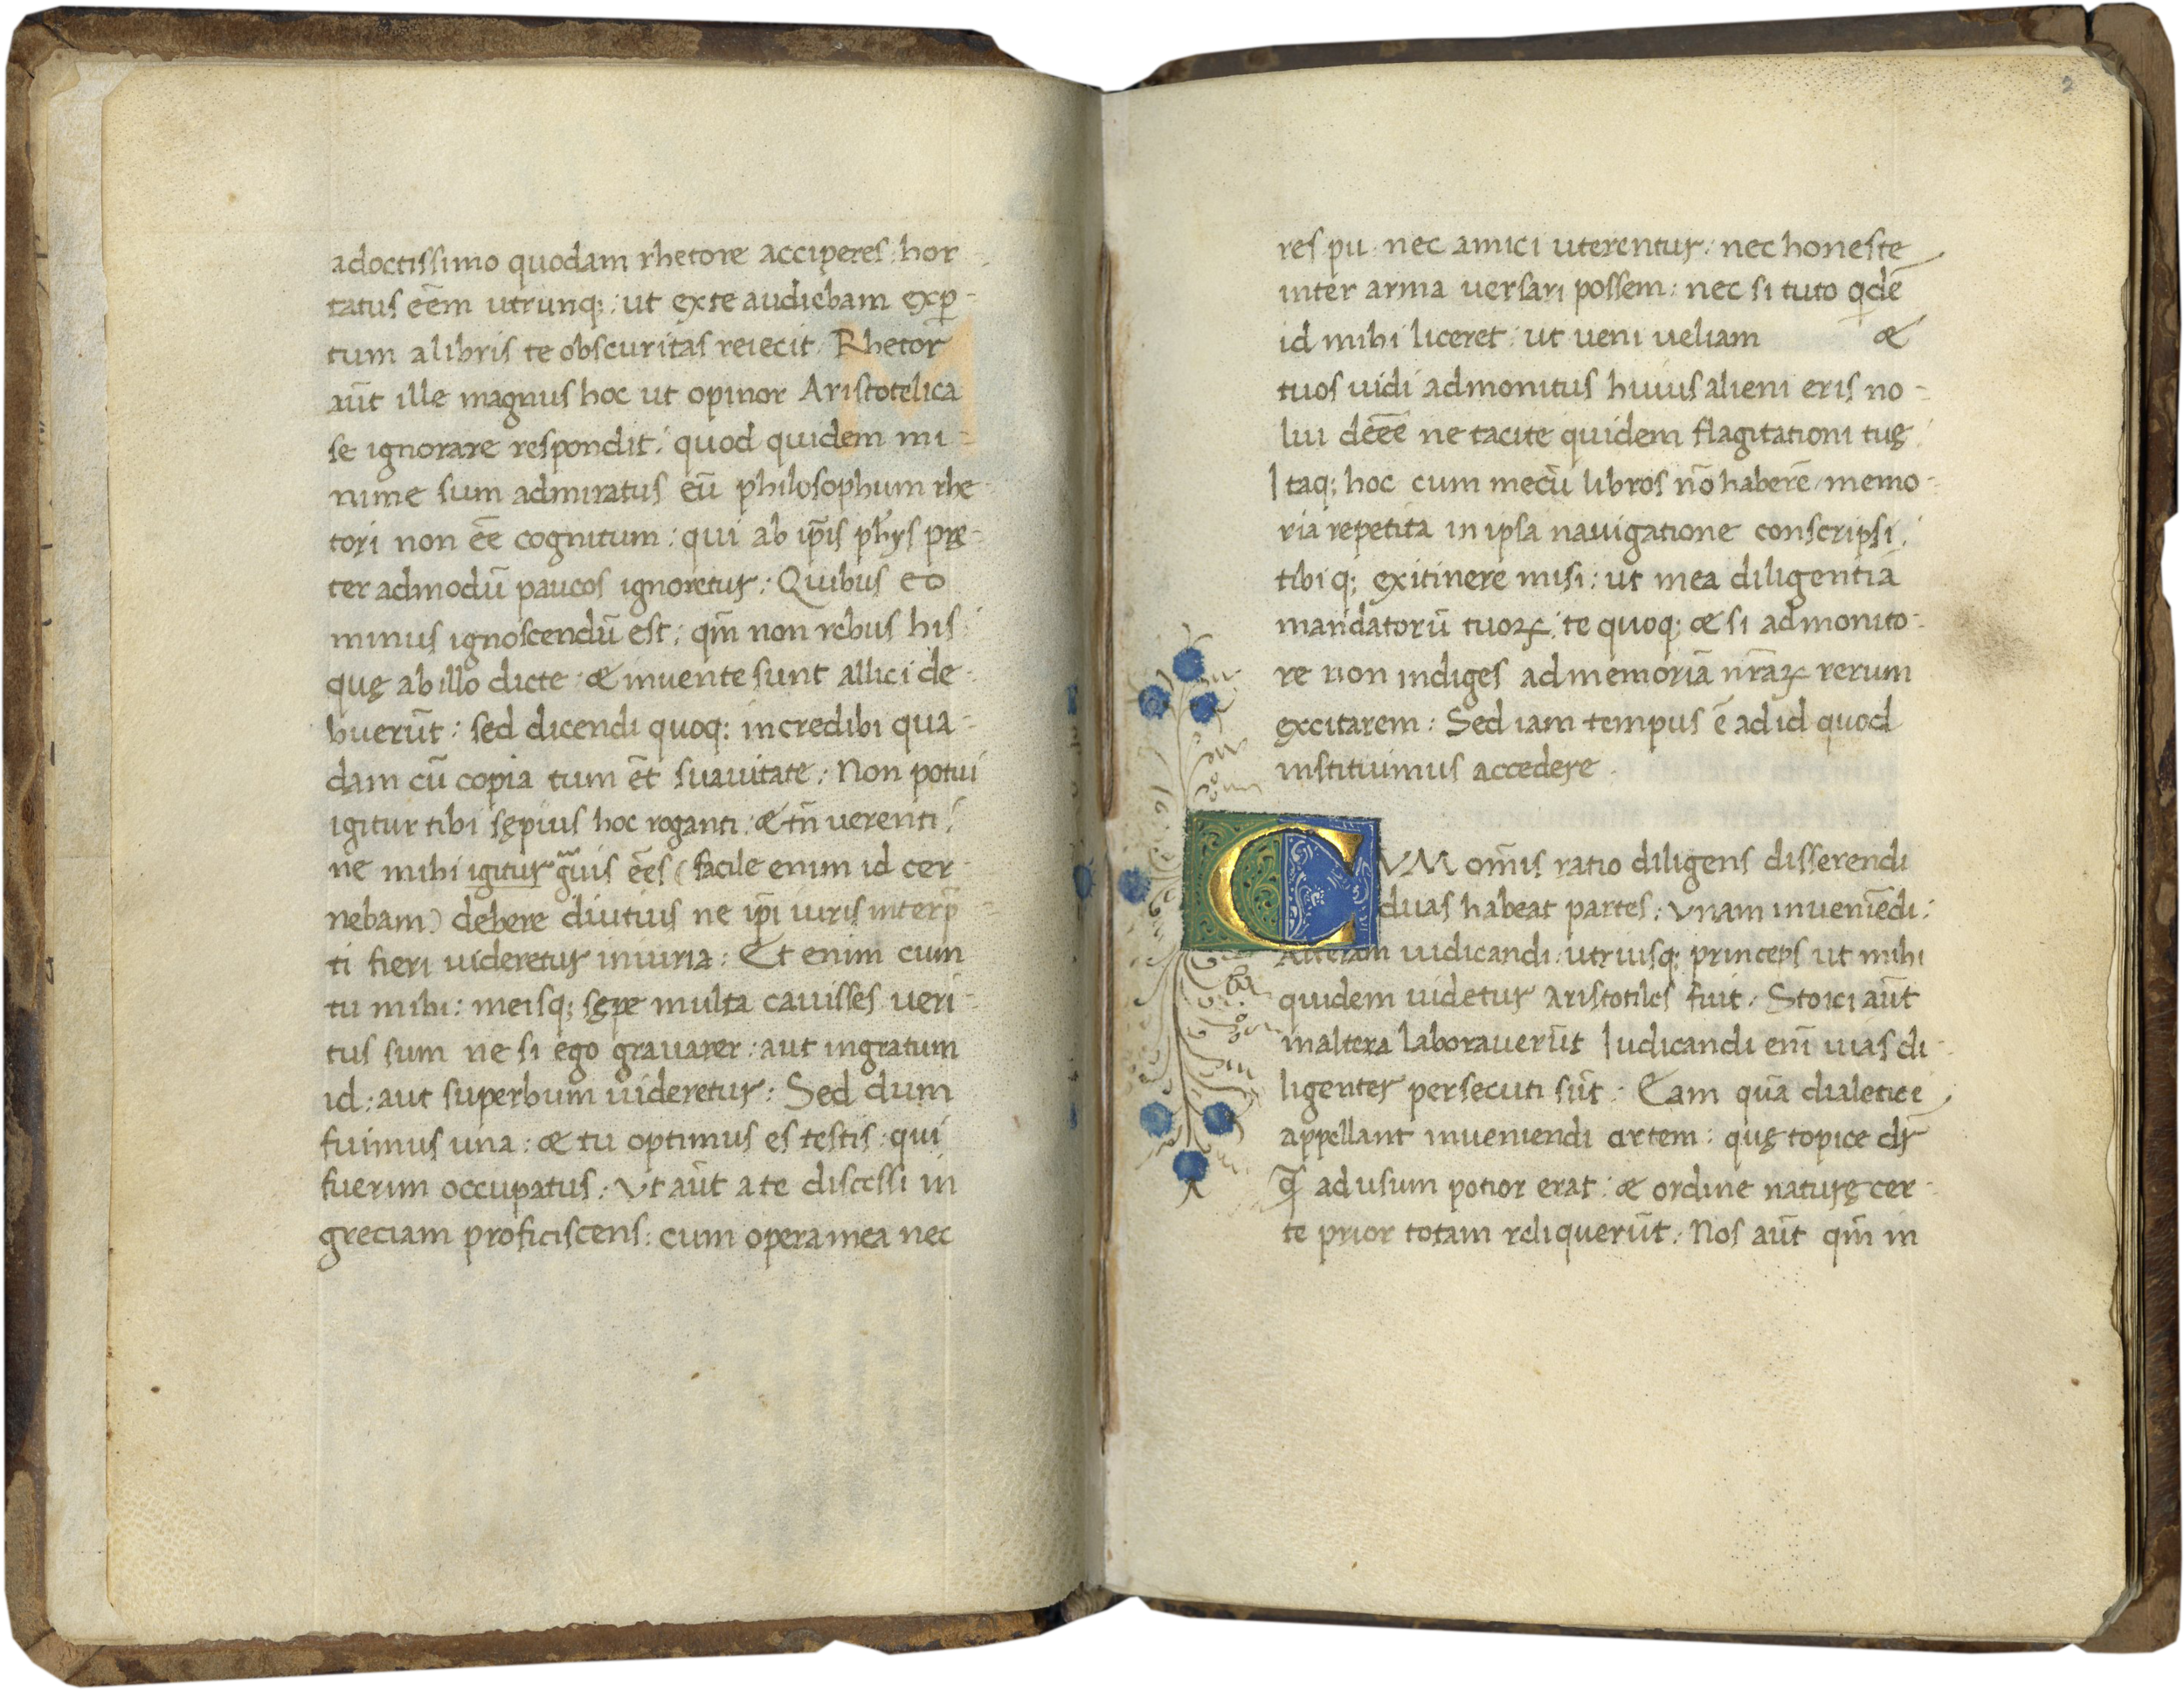 adoctissimo quodam rhetore acciperes: hor-
tatus eēm utrunq;: ut ex te audiebam exp̱-
tum a libris te obscuritas reiecit: Rhetor
aūt ille magnus hoc ut opinor Aristotelica
se ignorare respondit: quod quidem mi-
nime sum admiratus eū philosophum rhe-
tori non eē cognitum: qui ab ip̄is ph̄ys prę-
ter admodū paucos ignoretur: Quibus eo
minus ignoscendū est: qm̄ non rebus his
quę ab illo dicte: & inuente sunt allici de-
buerūt: sed dicendi quoq: incredibi qua-
dam cū copia tum ēt suauitate: Non potui
igitur tibi sępius hoc roganti: & tn̄ uerenti:
ne mihi igitur guis eēs (facile enim id cer-
nebam) debere diutius ne ip̄i iuris interp̄-
ti fieri uideretur iniuria: Et enim cum
tu mihi: meisq; sępe multa cauisses ueri-
tus sum ne si ego grauarer: aut ingratum
id: aut superbum uideretur: Sed dum
fuimus una: & tu optimus es testis: qui
fuerim occupatus: Vt aūt a te discessi in
greciam proficiscens: cum opera mea nec
2
res pu. nec amici uterentur: nec honeste
inter arma uersari possem: nec si tuto qdē
id mihi liceret: ut ueni ueliam &
tuos uidi admonitus huius alieni eris no-
lui deēē ne tacite quidem flagitationi tuę:
Itaq; hoc cum mecū libros nō haberē memo-
ria repetita in ipsa nauigatione conscripsi:
tibiq; ex itinere misi: ut mea diligentia
mandatorū tuoꝝ: te quoq; & si admonito-
re non indiges ad memoriā nr̄aꝝ rerum
excitarem: Sed iam tempus ē ad id quod
instituimus accedere.
CVM om̄is ratio diligens disserendi
duas habeat partes: vnam inueniēdi:
Alteram iudicandi: utriusq; princeps ut mihi
quidem uidetur aristotiles fuit: Stoici aūt
in altera laborauerūt Iudicandi eni᷑ uias di-
ligenter persecuti sūt: Eam quā dialetice
appellant inueniendi artem: quę topice dr̄
q̄ ad usum potior erat: & ordine naturę cer-
te prior totam reliquerūt: Nos aūt qm̄ in